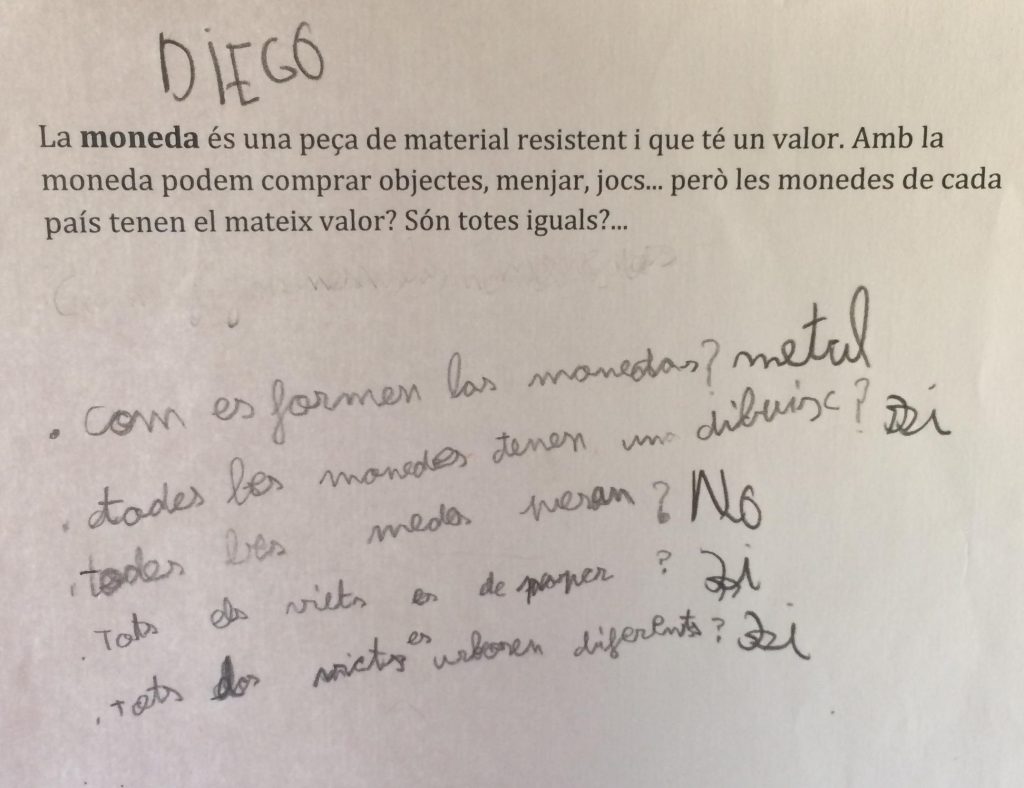 DiEGO
La moneda és una peça de material resistent i que té un valor. Amb la
moneda podem comprar objectes, menjar, jocs... però les monedes de cada
país tenen el mateix valor? Són totes iguals?...
. com es formen las monedas? metal
. todes les monedes tenen un dibuisc? si
. todes les medes pesan? No
. Tots els viets es de paper? si
. Tots dos es diferents? si